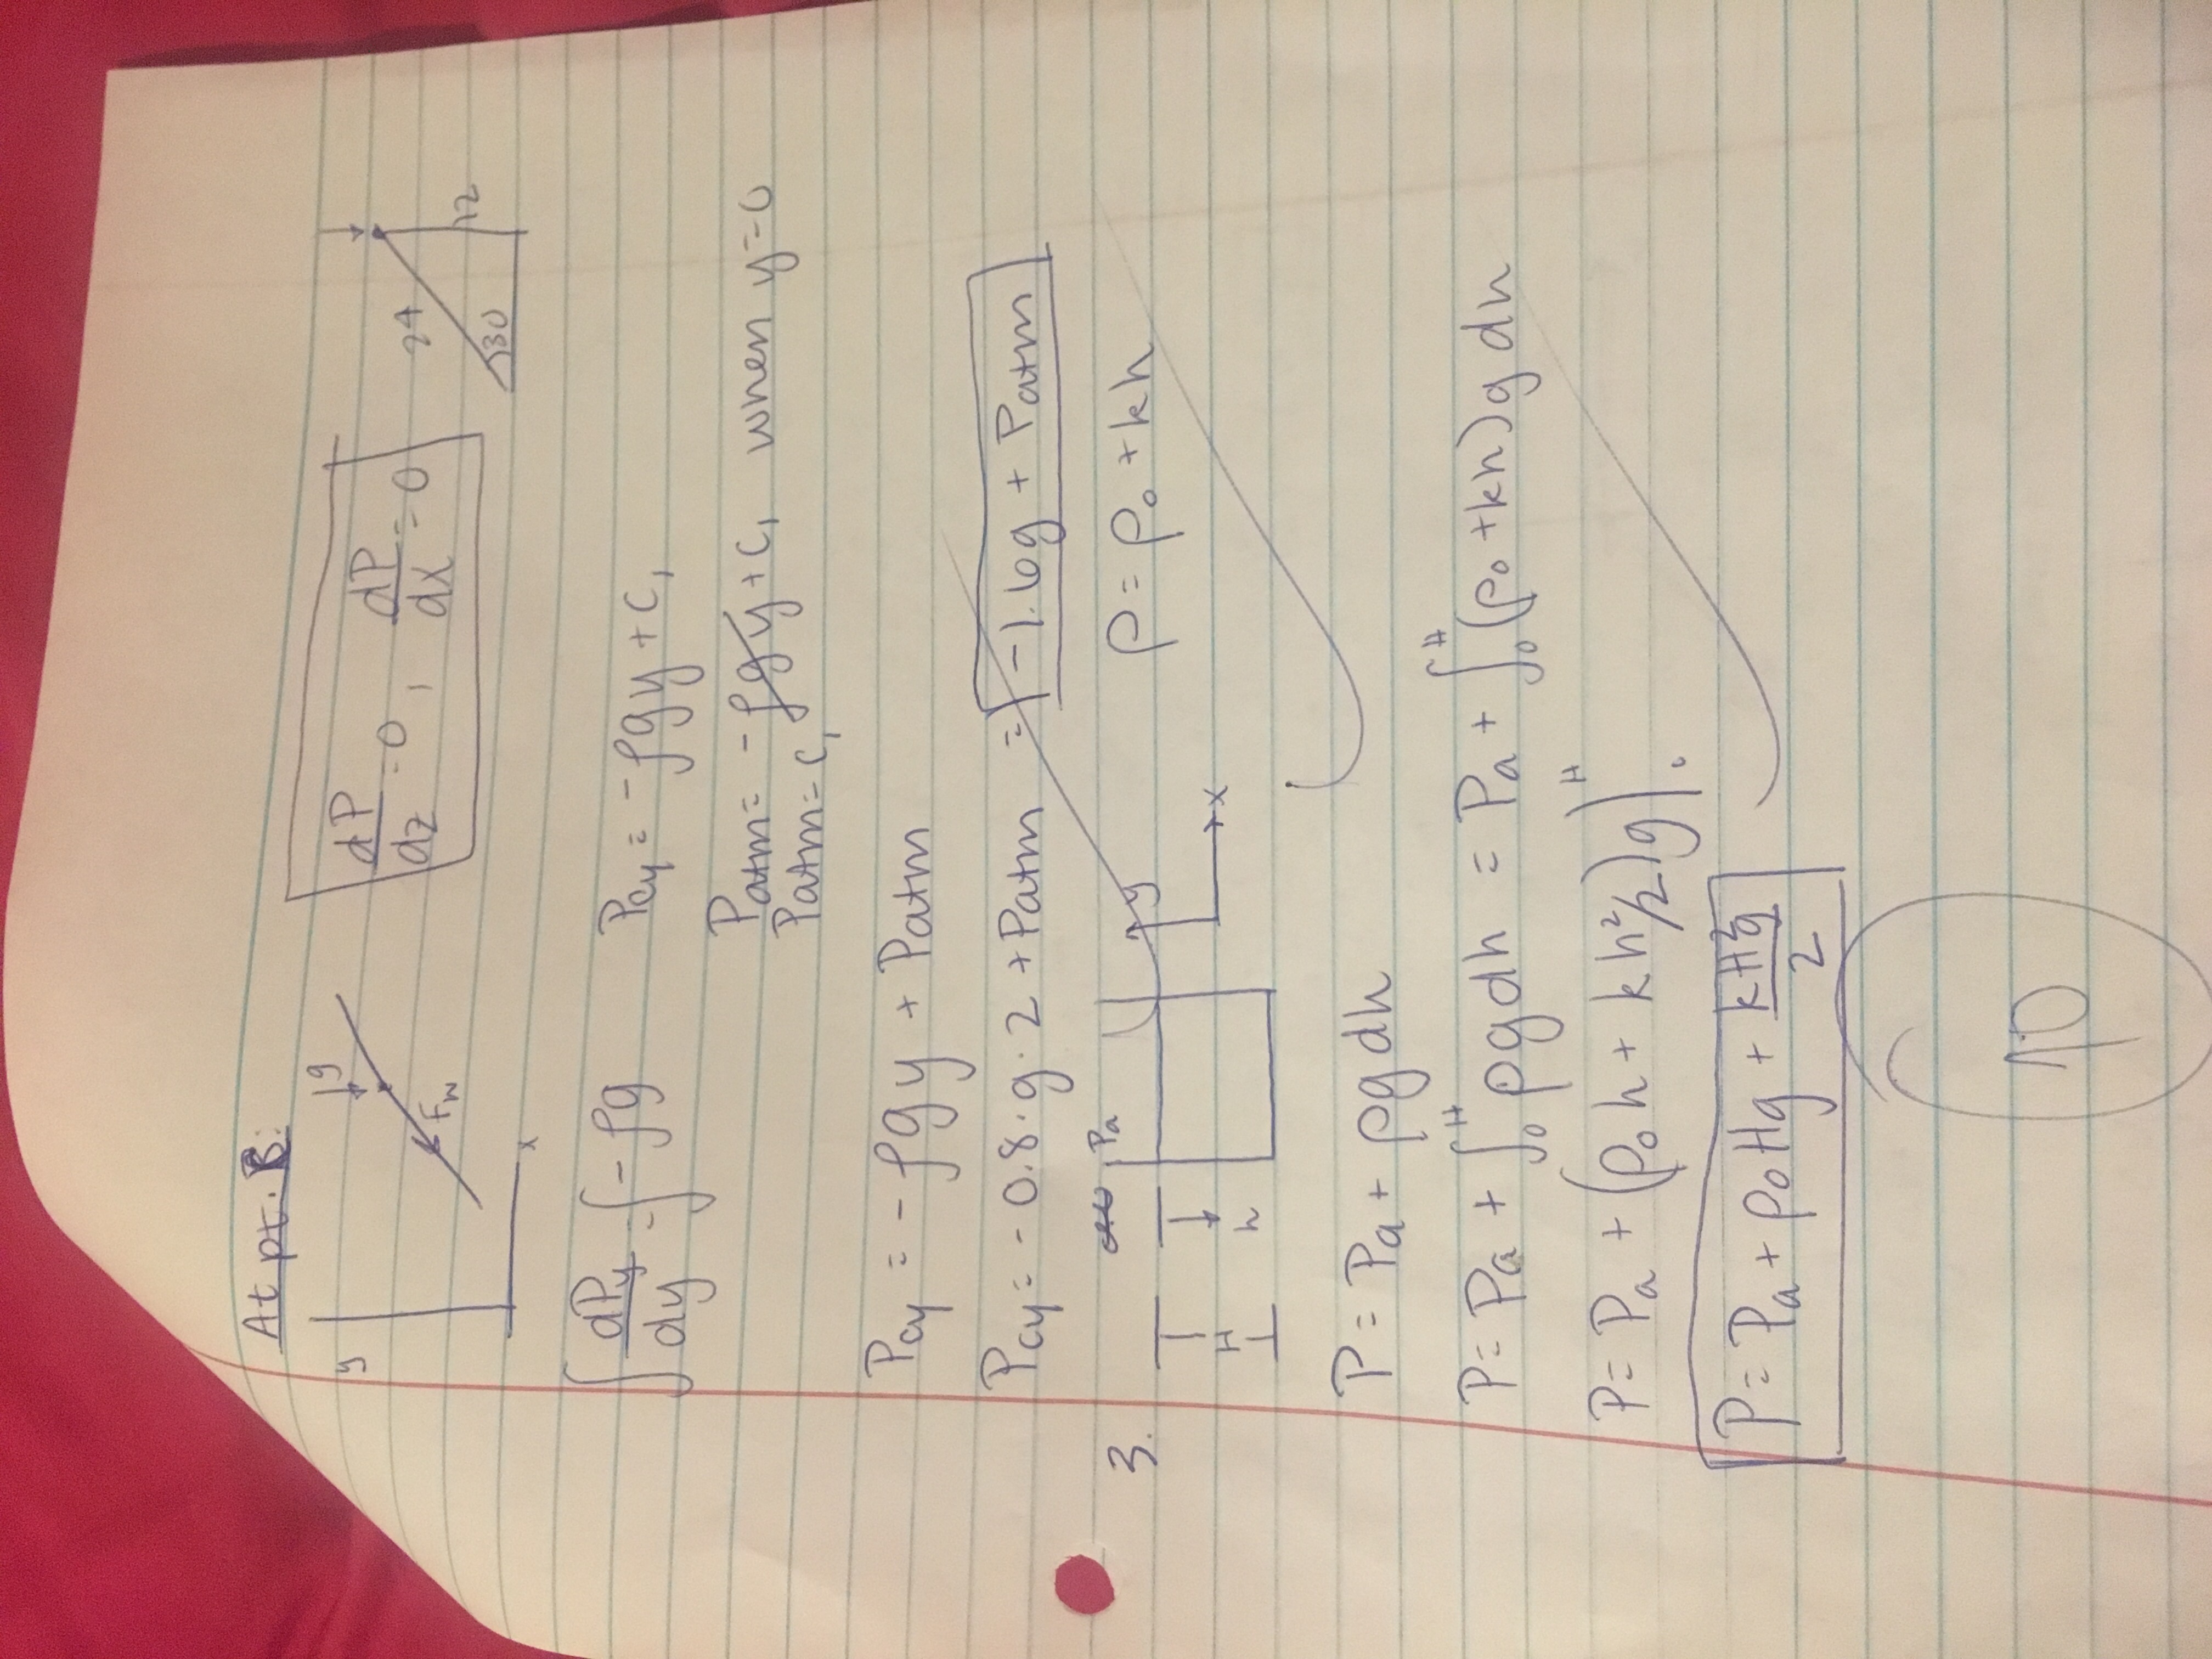 At pt. B:
y
g
Fw
x
dP/dz = 0, dP/dx = 0
24
12
30
∫ dPy/dy = ∫ -ρg
Pcy = -ρgy + C₁
Patm = -ρgy + C₁ when y=0
Patm = C₁
Pcy = -ρgy + Patm
Pcy = -0.8·g·2 + Patm = -1.6g + Patm
3.
Pa
H
h
y
x
ρ = ρ₀ + kh
P = Pa + ρgdh
P = Pa + ∫₀ᴴ ρgdh = Pa + ∫₀ᴴ (ρ₀ + kh)g dh
P = Pa + (ρ₀h + kh²/2)g|₀ᴴ
P = Pa + ρ₀Hg + kH²g/2
10